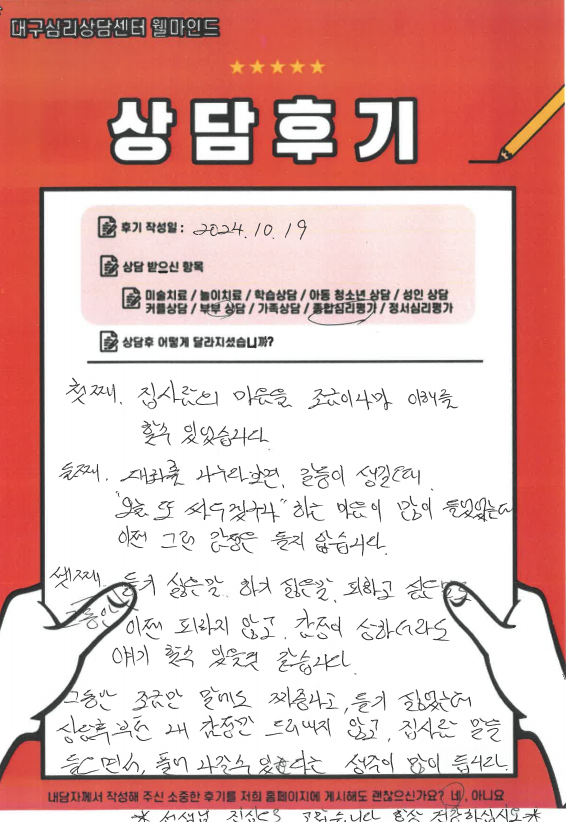 대구심리상담센터 웰마인드
상담후기
후기 작성일 : 2024. 10. 19
상담 받으신 항목
미술치료 / 놀이치료 / 학습상담 / 아동 청소년 상담 / 성인 상담
커플상담 / 부부 상담 / 가족상담 / 종합심리평가 / 정서심리평가
상담후 어떻게 달라지셨습니까?
첫째. 집사람의 마음을 조금이나마 이해를
할수 있었습니다.
둘째. 대화를 나누다보면, 갈등이 생길텐데
"오늘 또 싸우겠구나" 하는 마음이 많이 들었었는데
이젠 그런 감정은 들지 않습니다.
셋째. 듣기 싫은말. 하기 싫은말, 피하고 싶은
그동안 이젠 피하지 않고, 감정이 상하더라도
얘기 할수 있을것 같습니다.
그동안 조금만 말해도 짜증나고, 듣기 싫었는데
상담후부턴 내 감정만 드러내지 않고, 집사람 말을
들으면서, 풀어 나갈수 있겠다는 생각이 많이 듭니다.
내담자께서 작성해 주신 소중한 후기를 저희 홈페이지에 게시해도 괜찮으신가요? 네, 아니요
* 선생님 진심으로 고맙습니다 항상 건강하십시오 *